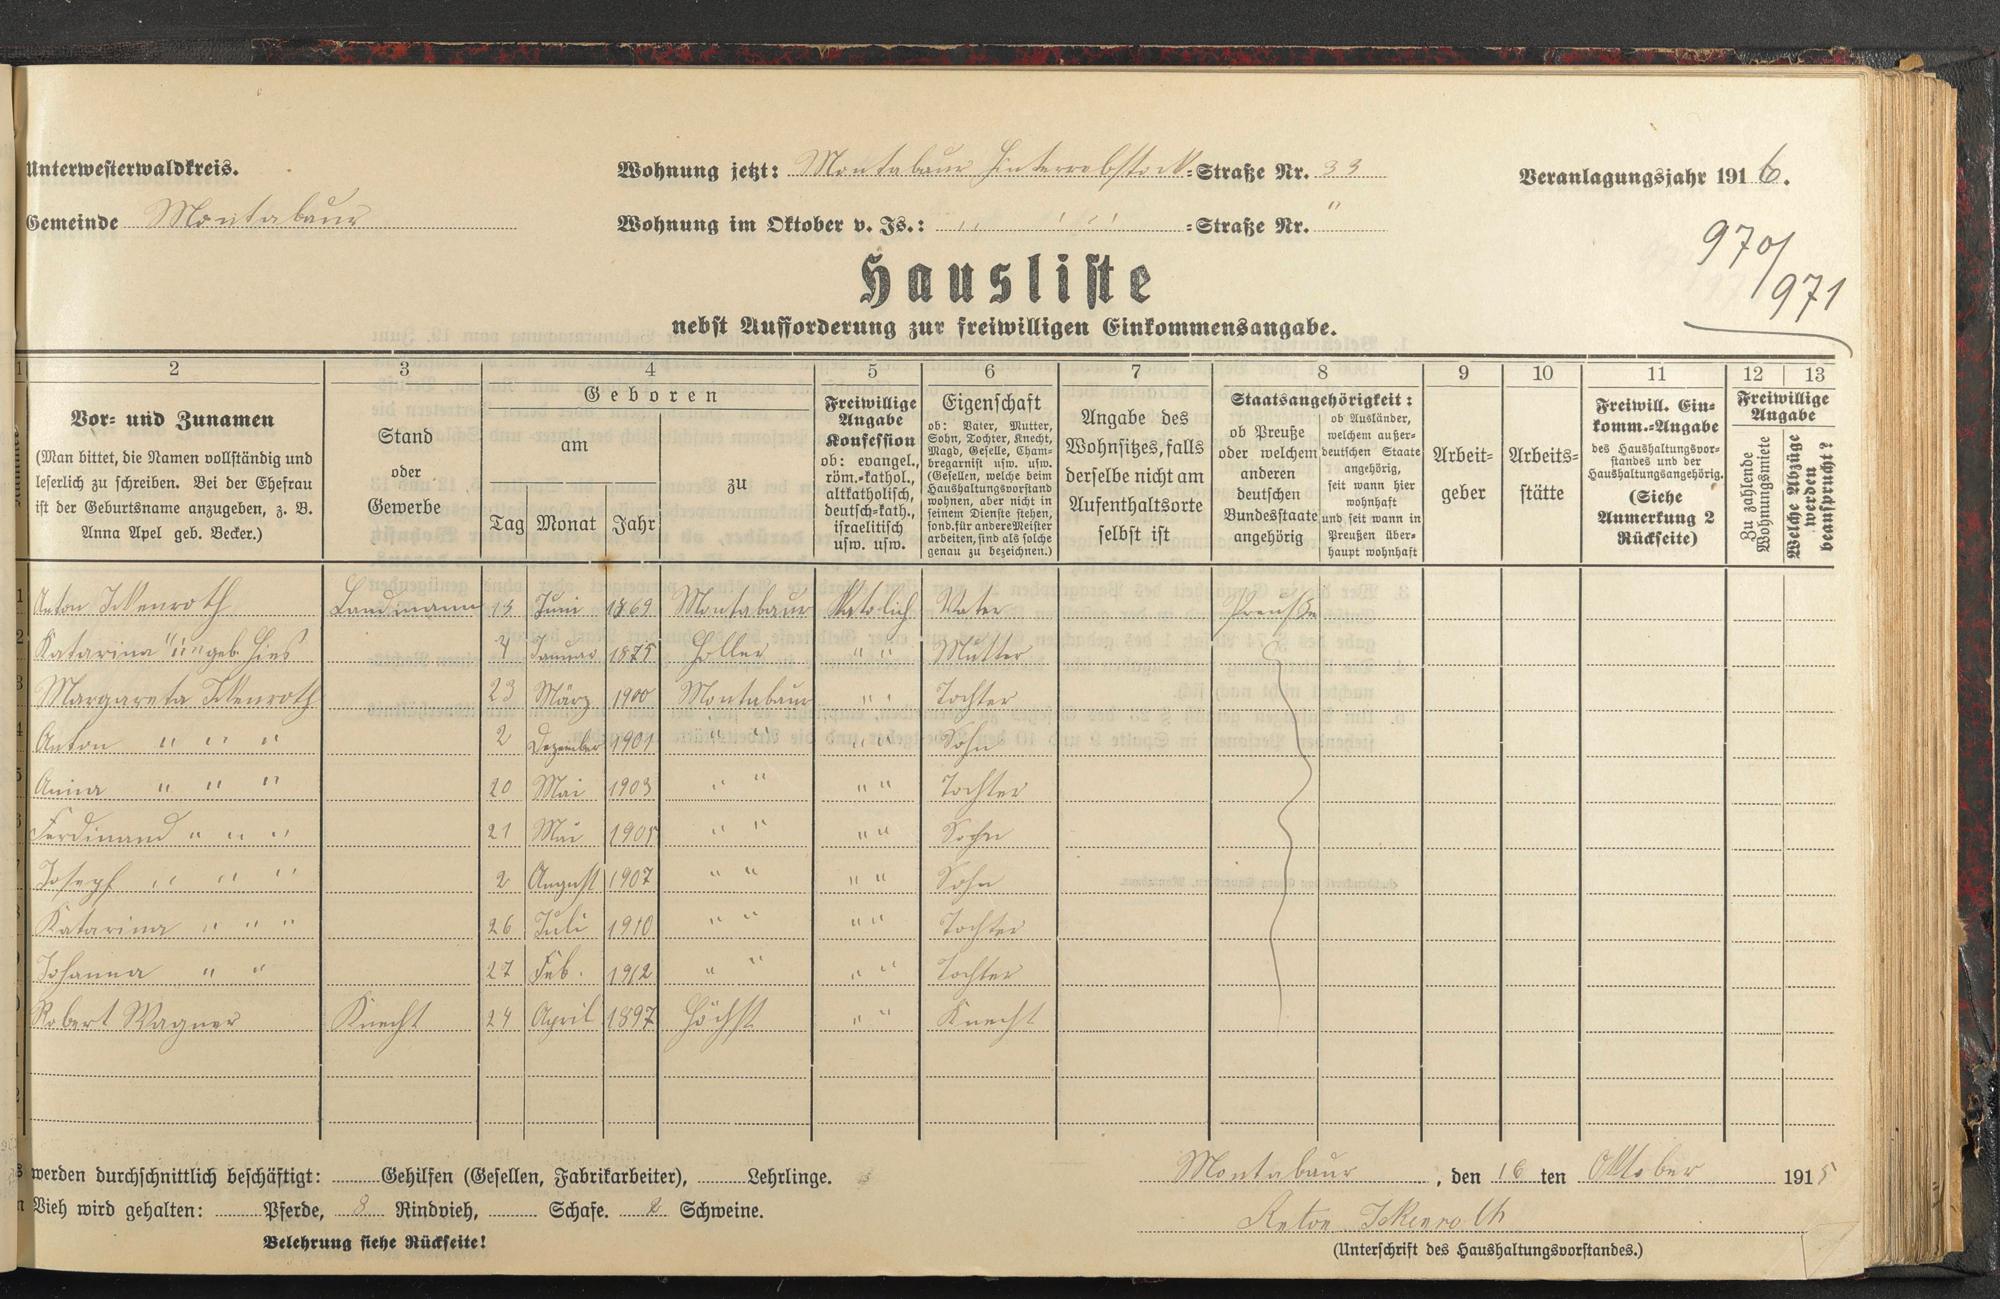 Unterwesterwaldkreis.
Wohnung jetzt: Montabaur Hinterrebstock-Straße Nr. 33
Veranlagungsjahr 1916.
Gemeinde Montabaur
Wohnung im Oktober v. Js.: " " " -Straße Nr. "
970/
971
Hausliste
nebst Aufforderung zur freiwilligen Einkommensangabe.
1 2 3 4 5 6 7 8 9 10 11 12 13
Vor- und Zunamen
(Man bittet, die Namen vollständig und
leserlich zu schreiben. Bei der Ehefrau
ist der Geburtsname anzugeben, z. B.
Anna Apel geb. Becker.)
Stand
oder
Gewerbe
Geboren
am
Tag Monat Jahr
zu
Freiwillige
Angabe
Konfession
ob: evangel.,
röm.-kathol.,
altkatholisch,
deutsch-kath.,
israelitisch
usw. usw.
Eigenschaft
ob: Vater, Mutter,
Sohn, Tochter, Knecht,
Magd, Geselle, Cham-
bregarnist usw. usw.
(Gesellen, welche beim
Haushaltungsvorstand
wohnen, aber nicht in
seinem Dienste stehen,
sond. für andere Meister
arbeiten, sind als solche
genau zu bezeichnen.)
Angabe des
Wohnsitzes, falls
derselbe nicht am
Aufenthaltsorte
selbst ist
Staatsangehörigkeit:
ob Preuße
oder welchem
anderen
deutschen
Bundesstaate
angehörig
ob Ausländer,
welchem außer-
deutschen Staate
angehörig,
seit wann hier
wohnhaft
und seit wann in
Preußen über-
haupt wohnhaft
Arbeit-
geber
Arbeits-
stätte
Freiwill. Ein-
komm.-Angabe
des Haushaltungsvor-
standes und der
Haushaltungsangehörig.
(Siehe
Anmerkung 2
Rückseite)
Freiwillige
Angabe
Zu zahlende
Wohnungsmiete
Welche Abzüge
werden
beansprucht?
1 Anton Ickenroth Landmann 13 Juni 1869 Montabaur Katolich Vater Preuße
2 Katarina " " geb. Hies 7 Januar 1875 Holler " " Mutter
3 Margareta Ickenroth 23 März 1900 Montabaur " " Tochter
4 Anton " " " 2 Dezember 1901 " " " " Sohn
5 Anna " " " 20 Mai 1903 " " " " Tochter
Ferdinand " " " 21 Mai 1905 " " " " Sohn
Joseph " " " 2 August 1907 " " " " Sohn
Katarina " " " 26 Juli 1910 " " " " Tochter
Johanna " " 27 Feb. 1912 " " " " Tochter
Robert Wagner Knecht 24 April 1897 Höchst " " Knecht
werden durchschnittlich beschäftigt: Gehilfen (Gesellen, Fabrikarbeiter), Lehrlinge.
Vieh wird gehalten: Pferde, 8 Rindvieh, Schafe. 2 Schweine.
Belehrung siehe Rückseite!
Montabaur, den 16 ten Oktober 1915
Anton Ickenroth
(Unterschrift des Haushaltungsvorstandes.)